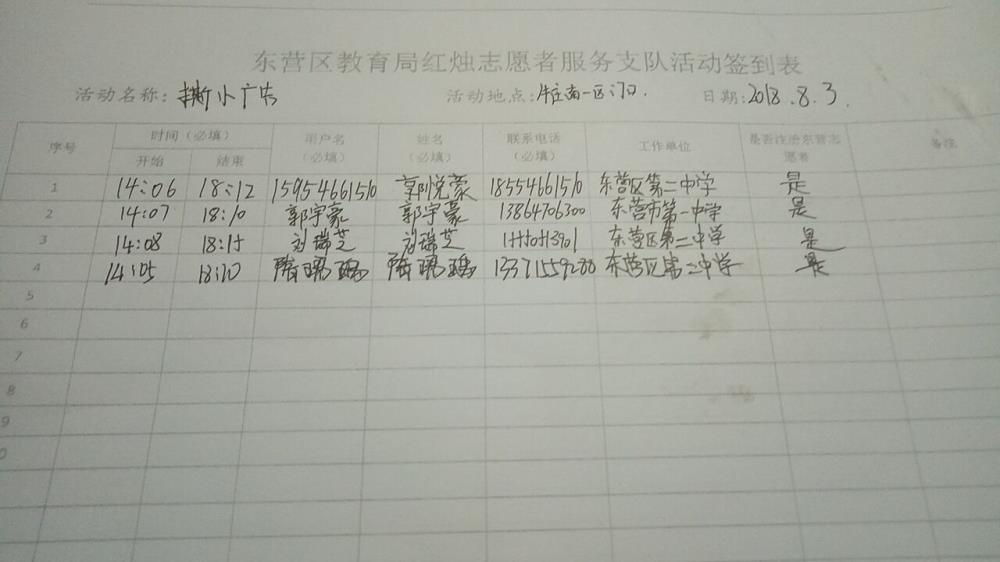 东营区教育局红烛志愿者服务支队活动签到表
活动名称: 撕小广告 活动地点: 牛庄南一区门口. 日期: 2018.8.3.
序号 时间（必填） 用户名（必填） 姓名（必填） 联系电话（必填） 工作单位 是否注册东营志愿者 备注
开始 结束
1 14:06 18:12 15954661510 郭悦豪 18554661510 东营区第二中学 是
2 14:07 18:10 郭宇豪 郭宇豪 13864706300 东营市第一中学 是
3 14:08 18:15 刘瑞芝 刘瑞芝 东营区第二中学 是
4 14:05 18:20 13371559288 东营区第二中学 是
5
6
7
8
9
0